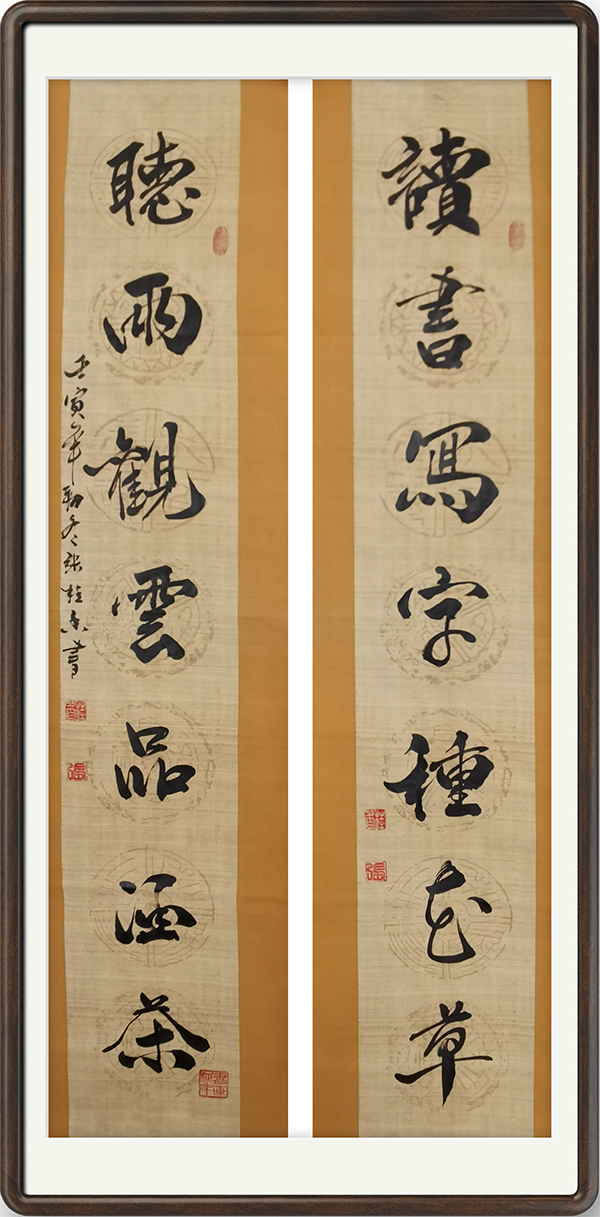 讀書寫字種花草
聽雨觀雲品酒茶
壬寅年初冬張桂香書